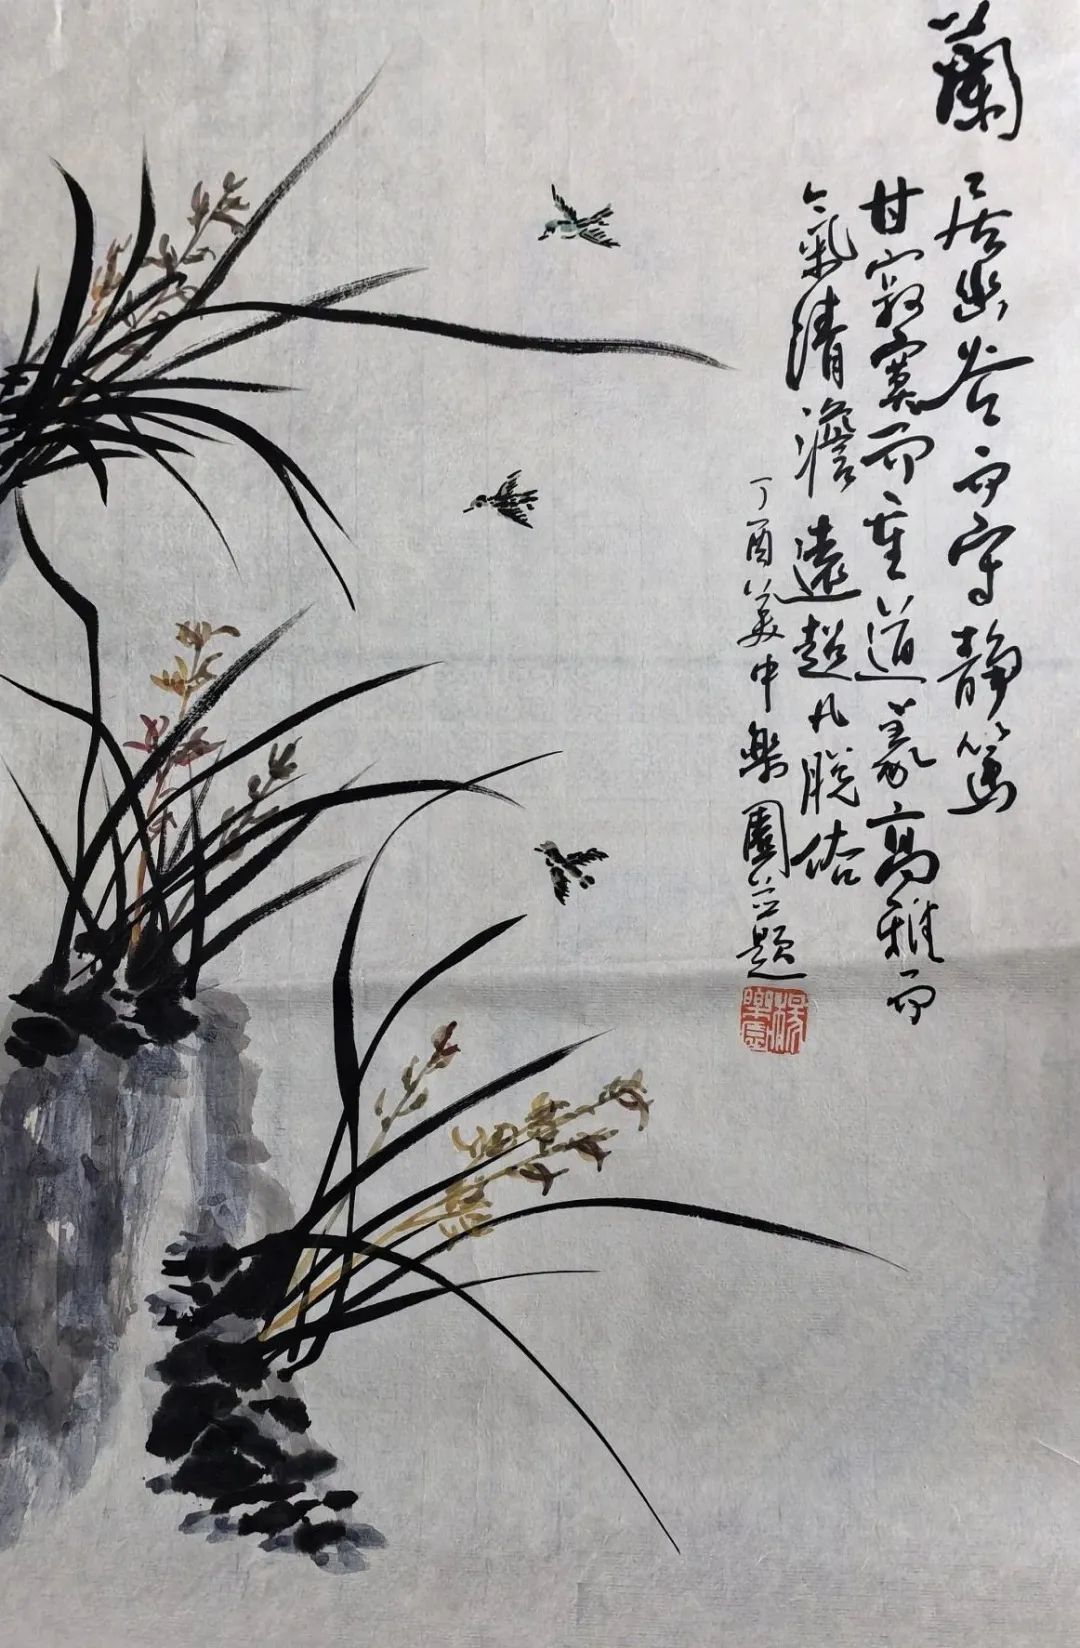 蘭
居幽谷而守静篤
甘寂寞而重道義高雅而
氣清澹遠超凡脱俗
丁酉 中樂園並題
楊樂園